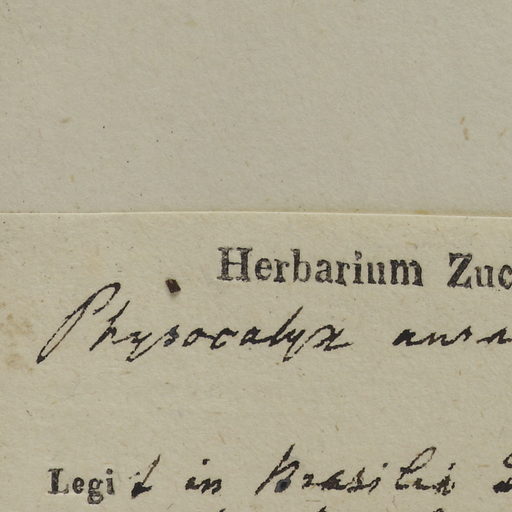 Herbarium Zuc
Physocalyx aura
Legit in Brasilia